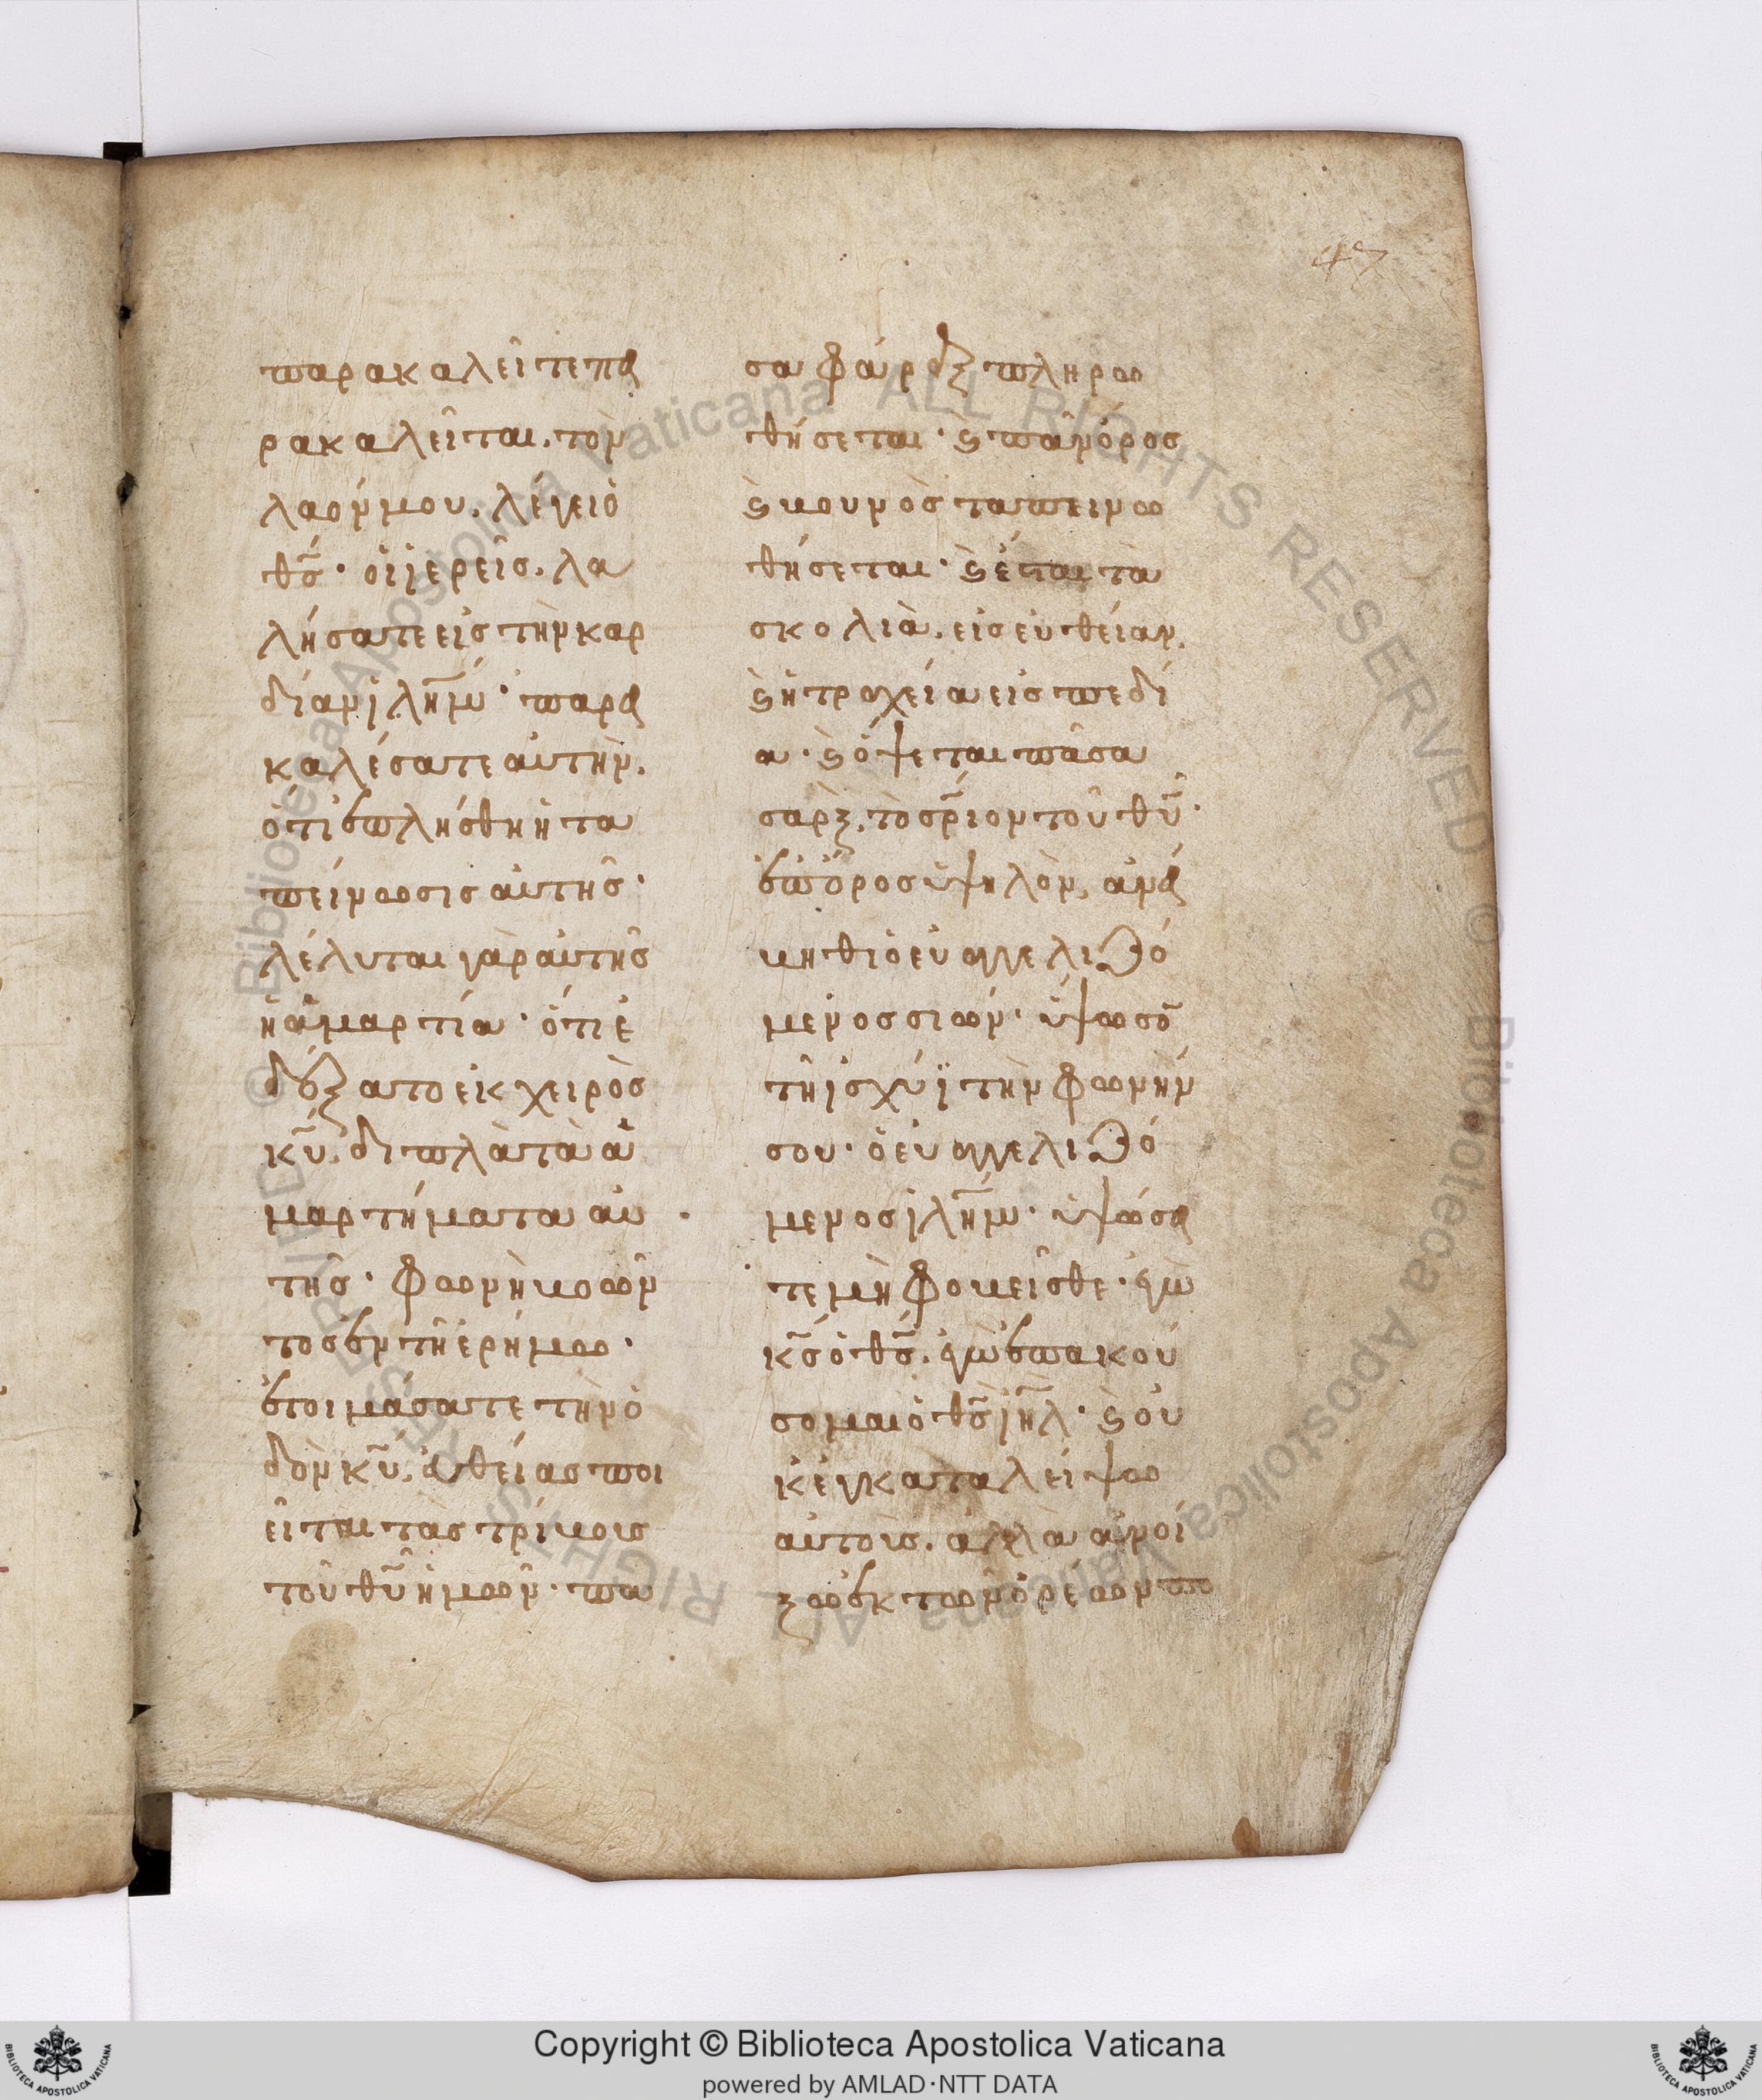 47
παρακαλεῖτε πα
ρακαλεῖται. τὸν
λαόν μου. λέγει ὁ
θ̅ς· οἱ ἱερεῖς. λα
λήσατε εἰς τὴν καρ
δίαν ἱλη̅μ· παρα
καλέσατε αὐτὴν.
ὅτι ἐπλήσθη ἡ τα
πείνωσις αὐτῆς·
λέλυται γὰρ αὐτῆς
ἡ ἁμαρτία· ὅτι ἐ
δέξατο ἐκ χειρὸς
κ̅υ. διπλὰ τὰ ἁ
μαρτήματα αὐ
τῆς· φωνὴ βοῶν
τος ἐν τῆ ἐρήμω·
ἑτοιμάσατε τὴν ὁ
δὸν κ̅υ. εὐθείας ποι
εῖται τὰς τρίβους
τοῦ θ̅υ ἡμῶν· πα
σα φάραξ πληρω
θήσεται· ϗ πᾶν ὄρος
ϗ βουνὸς ταπεινω
θήσεται· ϗ ἔσται τὰ
σκολιὰ. εἰς εὐθείαν.
ϗ ἡ τραχεία εἰς πεδί
α· ϗ ὄψεται πᾶσα
σαρξ. τὸ σ̅ριον τοῦ θ̅υ·
ἐπ ὄρος ὑψηλὸν. ἀνά
βηθι ὁ εὐαγγελιζό
μενος σιών· ὕψωσο̅
τῆ ἰσχύϊ τὴν φωνήν
σου· ὁ εὐαγγελιζό
μενος ἱλη̅μ· ὑψώσα
τε μὴ φοβεῖσθε· ἐγὼ
κ̅ς ὁ θ̅ς. ἐγὼ ἐπακού
σομαι ὁ θ̅ς ἰη̅λ· ϗ οὐ
κ ἐγκαταλείψω
αὐτοὺς. ἀλλὰ ἀνοί
ξω ἐκ τῶν ὀρέων πο
Copyright © Biblioteca Apostolica Vaticana
powered by AMLAD·NTT DATA